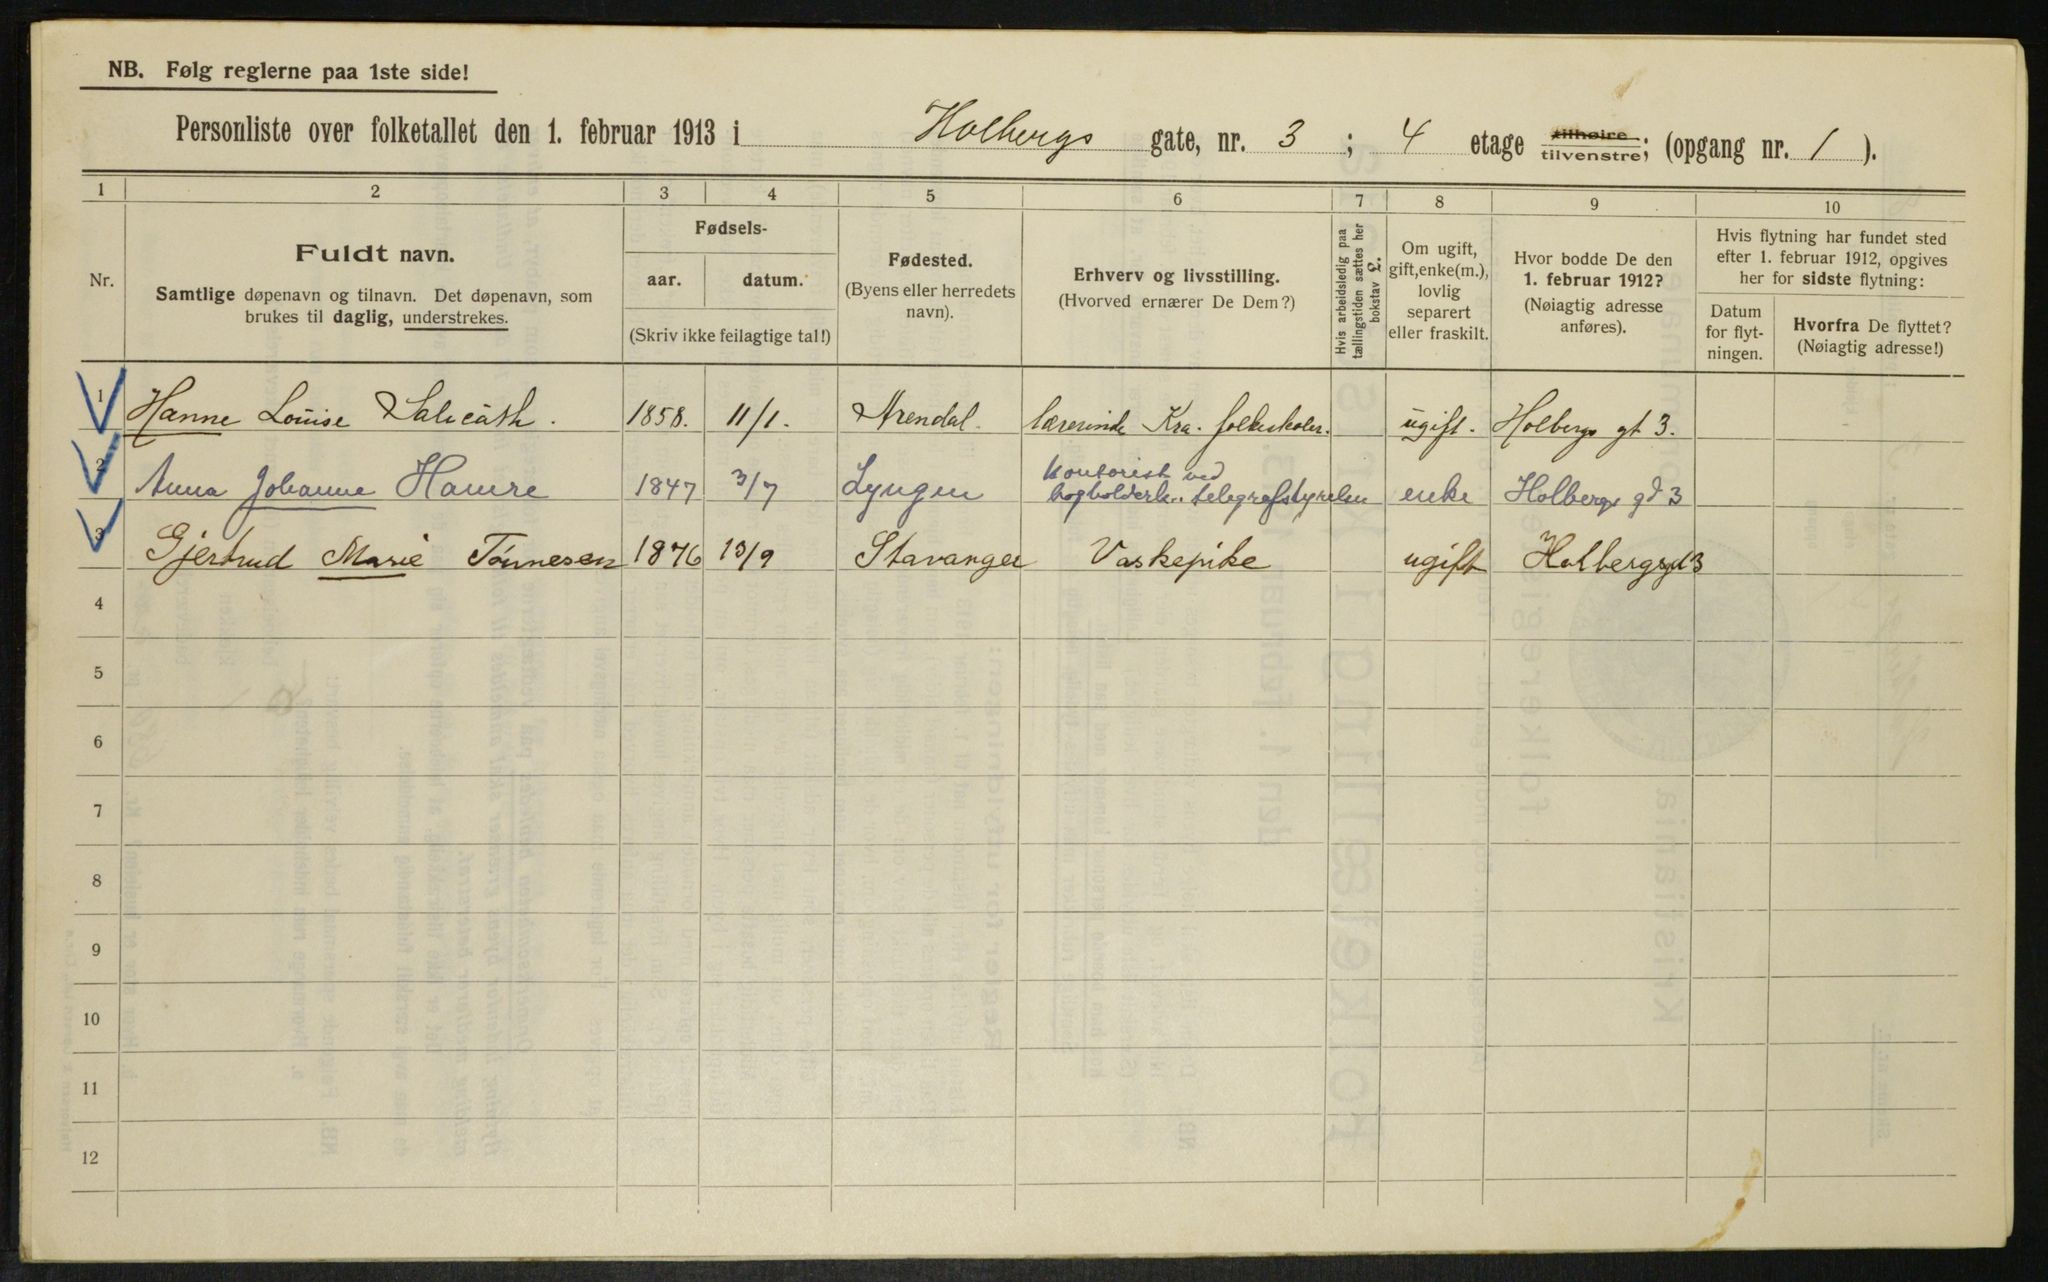 NB. Følg reglerne paa 1ste side!
Personliste over folketallet den 1. februar 1913 i Holbergs gate, nr. 3 ; 4 etage tilhøire tilvenstre; (opgang nr. 1 ).
1 2 3 4 5 6 7 8 9 10
Nr.
Fuldt navn.
Samtlige døpenavn og tilnavn. Det døpenavn, som
brukes til daglig, understrekes.
Fødsels-
aar. datum.
(Skriv ikke feilagtige tal!)
Fødested.
(Byens eller herredets
navn).
Erhverv og livsstilling.
(Hvorved ernærer De Dem?)
Hvis arbeidsledig paa
tællingstiden sættes her
bokstav L.
Om ugift,
gift, enke(m.),
lovlig
separert
eller fraskilt.
Hvor bodde De den
1. februar 1912?
(Nøiagtig adresse
anføres).
Hvis flytning har fundet sted
efter 1. februar 1912, opgives
her for sidste flytning:
Datum
for flyt-
ningen.
Hvorfra De flyttet?
(Nøiagtig adresse!)
1 Hanne Louise Salicath. 1858. 11/1. Arendal. lærerinde Kra. folkeskoler. ugift. Holbergs gt 3.
2 Anna Johanne Hamre 1847 3/7 Lyngen Kontorist ved
bogholderk.. telegrafstyrelsen enke Holbergs gd 3
3 Gjertrud Marie Tónnesen 1876 13/9 Stavanger Vaskepike ugift Holbergsgd 3
4
5
6
7
8
9
10
11
12